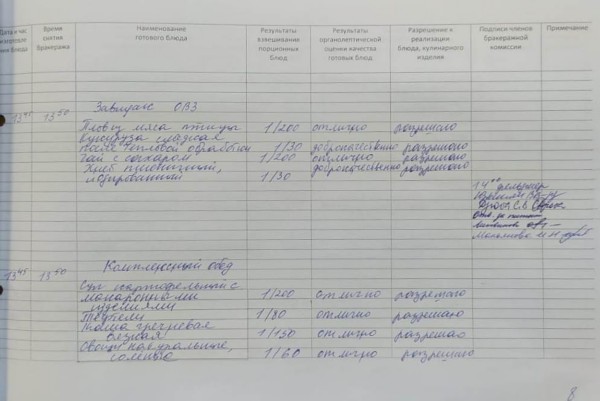 Дата и час изготовления блюда
Время снятия бракеража
Наименование готового блюда
Результаты взвешивания порционных блюд
Результаты органолептической оценки качества готовых блюд
Разрешение к реализации блюда, кулинарного изделия
Подписи членов бракеражной комиссии
Примечание
Завтрак ОВЗ
13 45 13 50
Плов из мяса птицы 1/200 отлично разрешаю
Кукуруза сладкая
после тепловой обработки 1/30 доброкачественно разрешаю
Чай с сахаром 1/200 отлично разрешаю
Хлеб пшеничный, доброкачественно разрешаю
йодированный 1/30
Комплексный обед
13 45 13 50
Суп картофельный с
макаронными 1/200 отлично разрешаю
изделиями
Тефтели 1/80 отлично разрешаю
Каша гречневая
вязкая 1/150 отлично разрешаю
Овощи натуральные,
соленые 1/60 отлично разрешаю
8